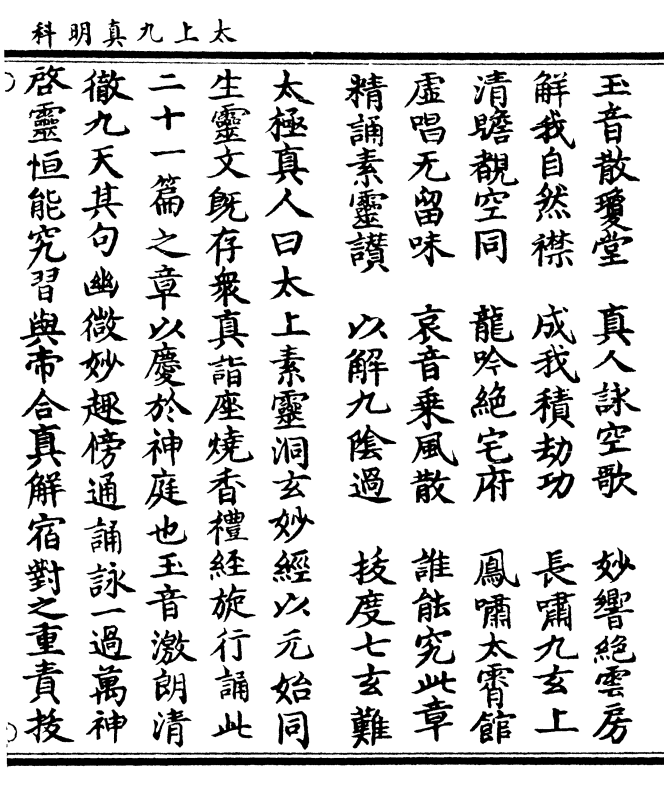 太上九真明科
玉音散瓊堂　真人詠空歌　妙響絕雲房
解我自然襟　成我積劫功　長嘯九玄上
清瞻覩空同　龍吟絕宅府　鳳嘯太霄館
虛唱无留味　哀音乘風散　誰能究此章
精誦素靈讚　以解九陰過　拔度七玄難
太極真人曰太上素靈洞玄妙經以元始同
生靈文既存衆真詣座燒香禮経旋行誦此
二十一篇之章以慶於神庭也玉音激朗清
徹九天其句幽微妙趣傍通誦詠一過萬神
啓靈恒能究習與帝合真解宿對之重責拔